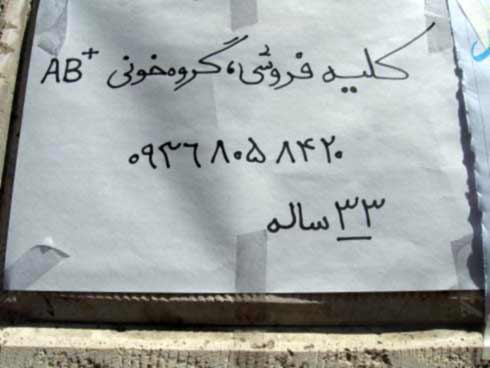 کلیه فروشی، گروه خونی AB+
۰۹۳۶ ۸۰۵ ۸۴۲۰
۳۳ ساله